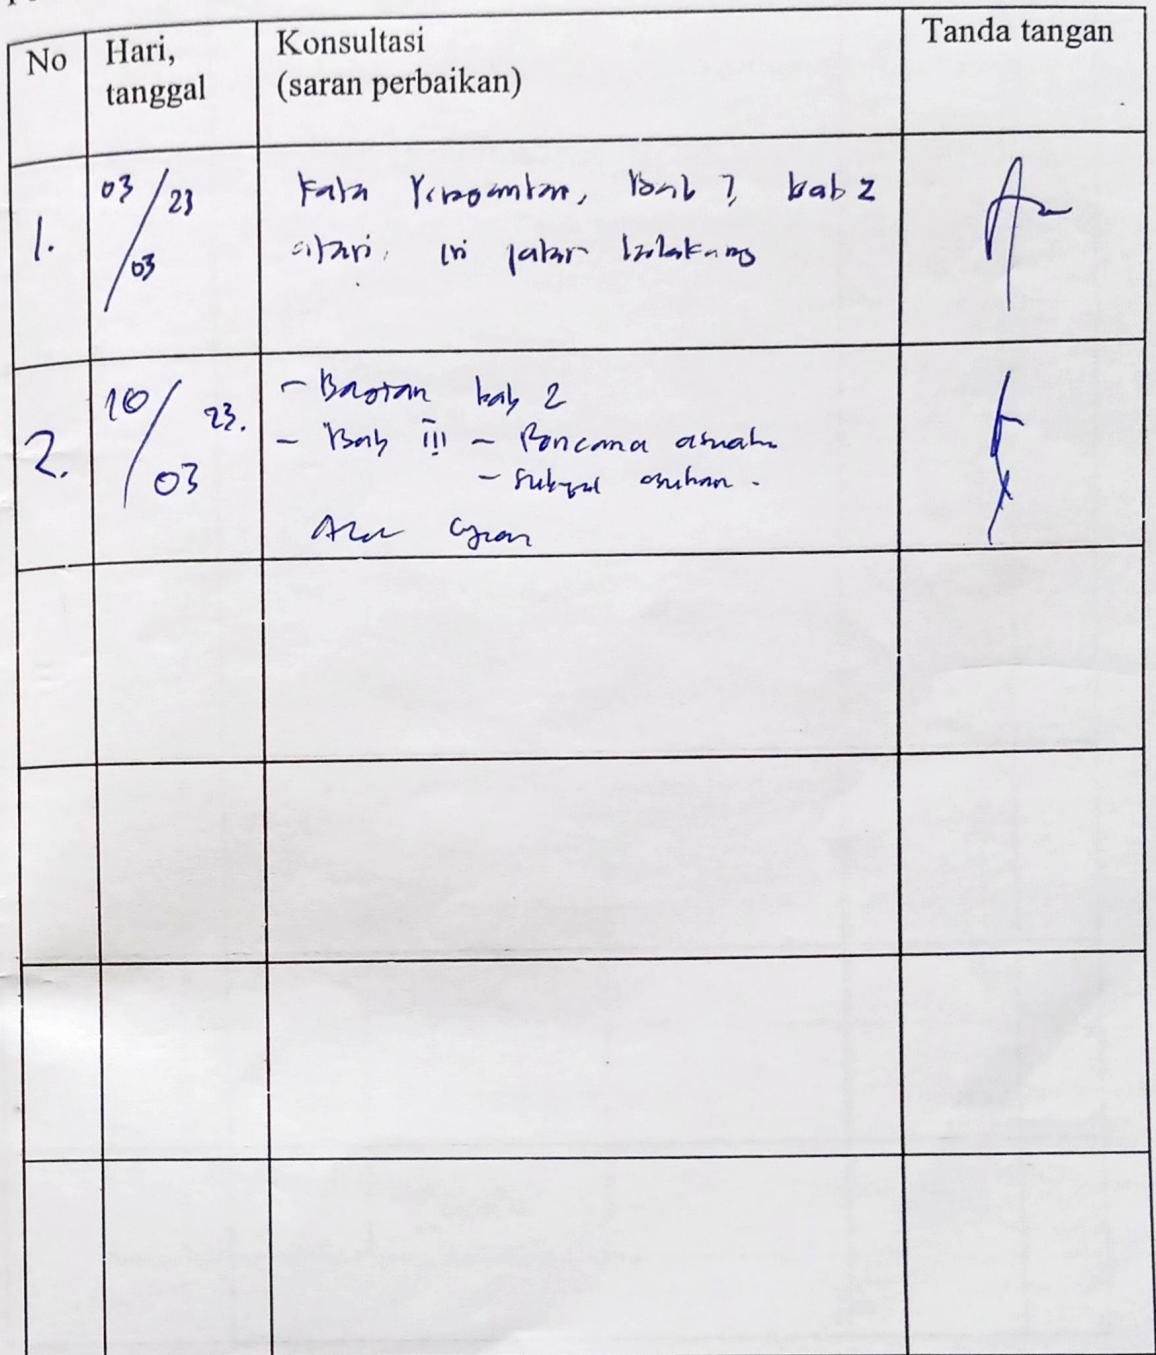 No
Hari,
tanggal
Konsultasi
(saran perbaikan)
Tanda tangan
1.
03/03 23
Kata Pengantar, Bab bab 2
sitasi, isi latar belakang
2.
10/03 23.
- Bagian bab 2
- Bab III - Rencana asuhan
- Subyek asuhan.